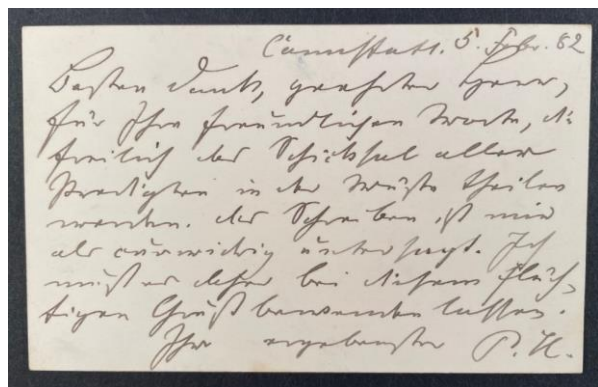 Cannstatt. 5. Febr. 82
Besten Dank, geehrter Herr,
für Ihre freundlichen Worte, die
freilich das Schicksal aller
Predigten in der Wüste theilen
werden. das Schreiben ist mir
als curwidrig untersagt. Ich
muß es daher bei diesem flüch-
tigen Gruß bewenden lassen.
Ihr ergebenster